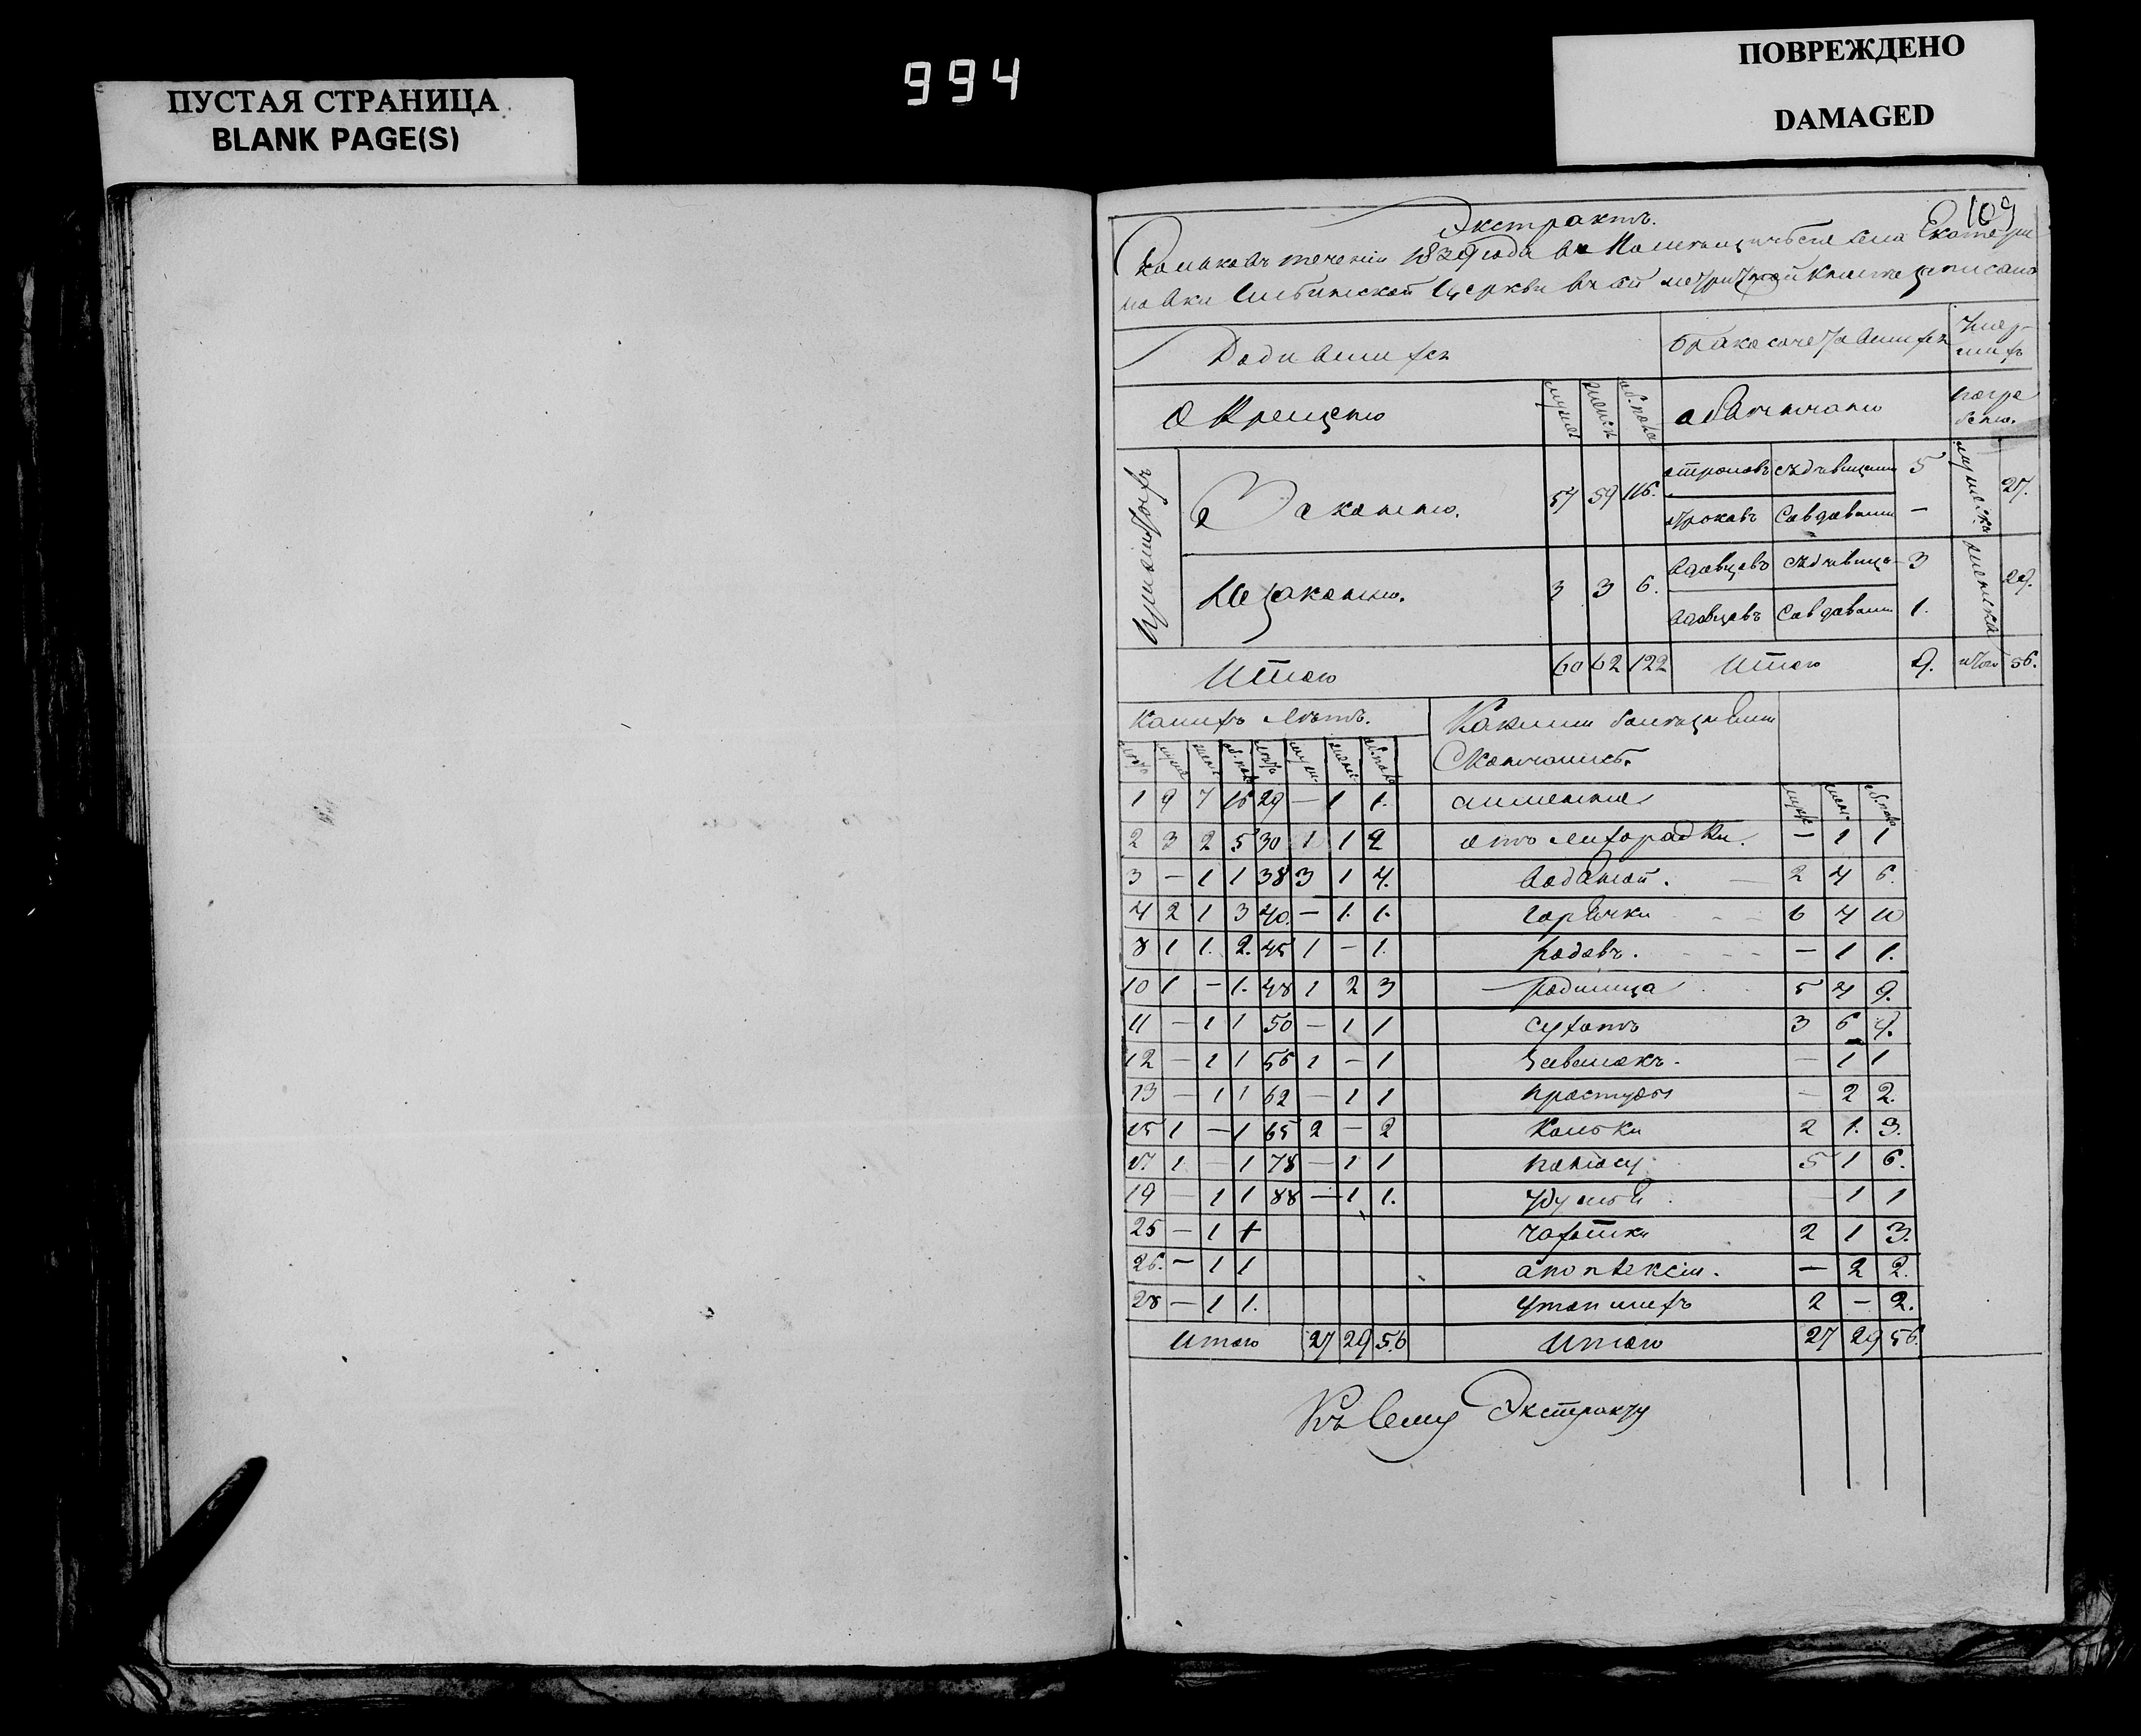 994
ПУСТАЯ СТРАНИЦА
BLANK PAGE(S)
ПОВРЕЖДЕНО
DAMAGED
109
Экстрактъ.
Колико въ теченіи 1829 года села Екатери
новки церкви въ сей метричной книге записано
Родившихся
Бракосочетавшихся
Умер-
шихъ
Окрещено
мужес
женск
об. пола
обвенчано
погре
бено.
Законно.
57 59 116.
отроковъ съ девицами 5
мужеска 27.
отроковъ со вдовами —
Незаконно.
3 3 6.
вдовцовъ съ девицъ 3
женска 29.
вдовцовъ со вдовами 1.
Итого 60 62 122 Итого 9. итого 56.
Коихъ летъ.
Какими болезньми
Скончались.
1 9 7 16 29 — 1 1.
2 3 2 5 30 1 1 2 отъ лихорадки. — 1 1
3 — 1 1 38 3 1 4. водяной. 2 4 6.
4 2 1 3 40. — 1. 1. горячки 6 4 10
8 1 1. 2. 45 1 — 1. родовъ. — 1 1.
10 1 — 1. 48 1 2 3 родимца 5 4 9.
11 — 1 1 50 — 1 1 сухотъ 3 6 9.
12 — 1 1 56 1 — 1 — 1 1
13 — 1 1 62 — 1 1 простуды — 2 2.
15 1 — 1 65 2 — 2 колотьи 2 1. 3.
17 1 — 1 78 — 1 1 поносу 5 1 6.
19 — 1 1 88 — 1 1. — 1 1
25 — 1 1 чахотки 2 1 3.
26. — 1 1 апоплексіи. — 2 2.
28 — 1 1. утопшихъ 2 — 2.
Итого 27 29 56 Итого 27 29 56.
Къ сему Экстракту